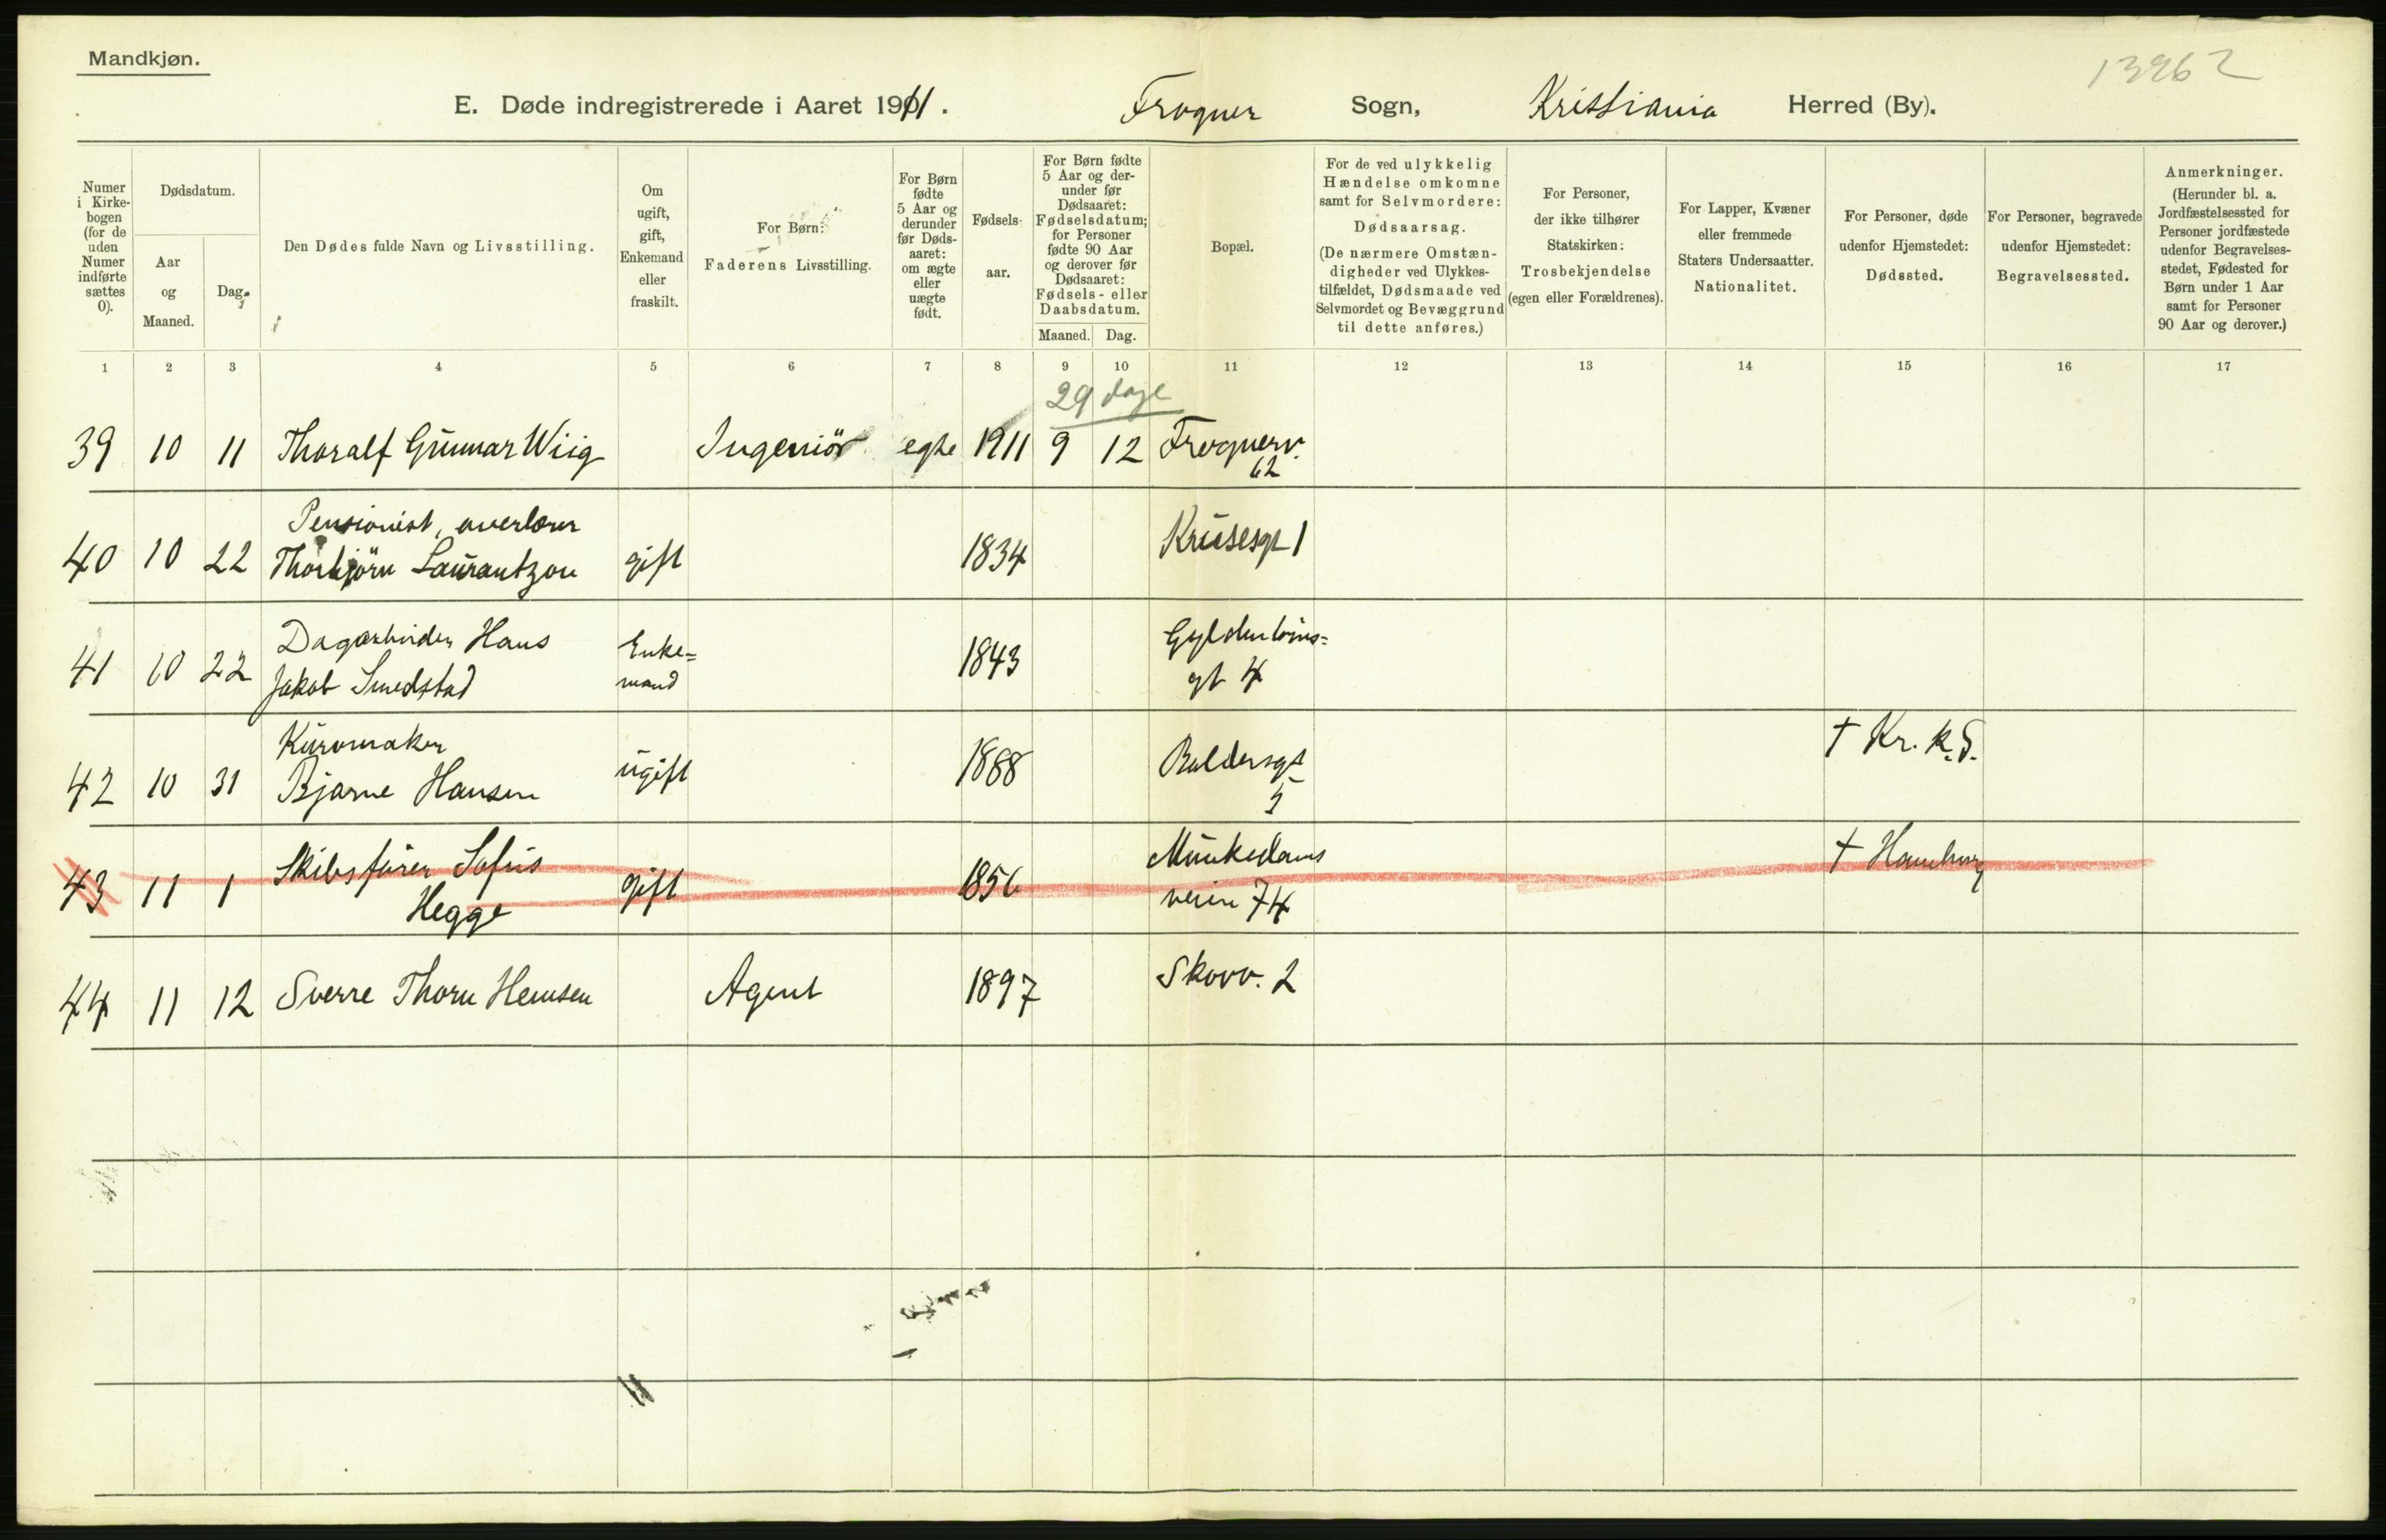 Mandkjøn.
13262
E. Døde indregistrerede i Aaret 1911. Frogner Sogn, Kristiania Herred (By).
Numer i Kirkebogen (for de uden Numer indførte sættes 0).
Dødsdatum.
Aar og Maaned.
Dag.
Den Dødes fulde Navn og Livsstilling.
Om ugift, gift, Enkemand eller fraskilt.
For Børn: Faderens Livsstilling.
For Børn fødte 5 Aar og derunder før Dødsaaret: om ægte eller uægte født.
Fødselsaar.
For Børn fødte 5 Aar og derunder før Dødsaaret: Fødselsdatum; for Personer fødte 90 Aar og derover før Dødsaaret: Fødsels- eller Daabsdatum.
Maaned. Dag.
Bopæl.
For de ved ulykkelig Hændelse omkomne samt for Selvmordere: Dødsaarsag. (De nærmere Omstændigheder ved Ulykkestilfældet, Dødsmaade ved Selvmordet og Bevæggrund til dette anføres.)
For Personer, der ikke tilhører Statskirken: Trosbekjendelse (egen eller Forældrenes).
For Lapper, Kvæner eller fremmede Staters Undersaatter. Nationalitet.
For Personer, døde udenfor Hjemstedet: Dødssted.
For Personer, begravede udenfor Hjemstedet: Begravelsessted.
Anmerkninger. (Herunder bl. a. Jordfæstelsessted for Personer jordfæstede udenfor Begravelsesstedet, Fødested for Børn under 1 Aar samt for Personer 90 Aar og derover.)
1 2 3 4 5 6 7 8 9 10 11 12 13 14 15 16 17
29 dage
39 10 11 Thoralf Gunnar Wiig Ingeniör egte 1911 9 12 Frognerv. 62
Pensionist, overlærer
40 10 22 Thorbjörn Laurantzon gift 1834 Krusesgt 1
Dagarbeider Hans Enke= Gyldenløves=
41 10 22 Jakob Smedstad mand 1843 gt 4
Kurvmaker † Kr. k. S.
42 10 31 Bjarne Hansen ugift 1888 Baldersgt 5
Skibsfører Sofus Munkedams † Hamburg
43 11 1 Hegge gift 1856 veien 74
44 11 12 Sverre Thorn Hemsen Agent 1897 Skovv. 2